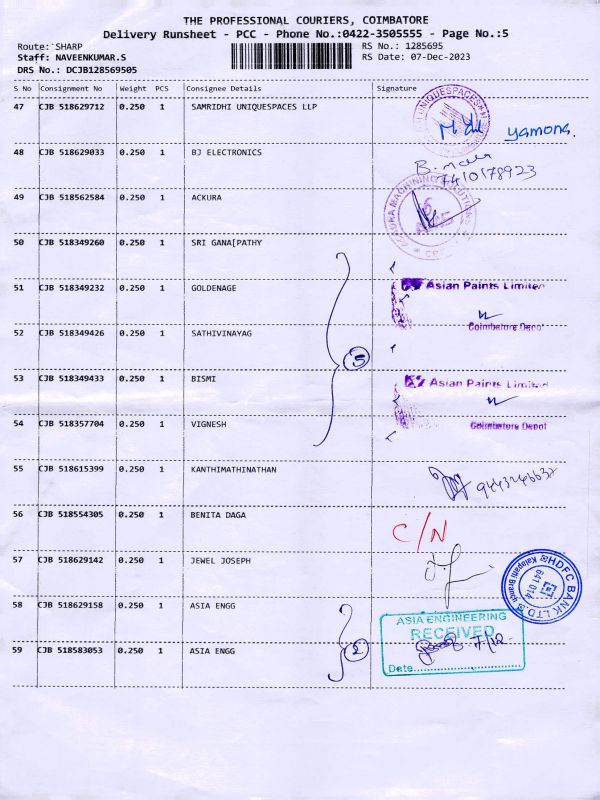 THE PROFESSIONAL COURIERS, COIMBATORE
Delivery Runsheet - PCC - Phone No.:0422-3505555 - Page No.:5
Route: SHARP
RS No.: 1285695
Staff: NAVEENKUMAR.S
RS Date: 07-Dec-2023
DRS No.: DCJB128569505
S No Consignment No Weight PCS Consignee Details Signature
47 CJB 518629712 0.250 1 SAMRIDHI UNIQUESPACES LLP yamona.
48 CJB 518629033 0.250 1 BJ ELECTRONICS
7410178923
49 CJB 518562584 0.250 1 ACKURA
50 CJB 518349260 0.250 1 SRI GANA[PATHY
51 CJB 518349232 0.250 1 GOLDENAGE Asian Paints Limited
Coimbatore Depot
52 CJB 518349426 0.250 1 SATHIVINAYAG
5
53 CJB 518349433 0.250 1 BISMI Asian Paints Limited
54 CJB 518357704 0.250 1 VIGNESH Coimbatore Depot
55 CJB 518615399 0.250 1 KANTHIMATHINATHAN
56 CJB 518554305 0.250 1 BENITA DAGA C/N
57 CJB 518629142 0.250 1 JEWEL JOSEPH
HDFC BANK LTD Kalapatti Branch 641 014
58 CJB 518629158 0.250 1 ASIA ENGG
ASIA ENGINEERING
RECEIVED
7/12
Date
2
59 CJB 518583053 0.250 1 ASIA ENGG